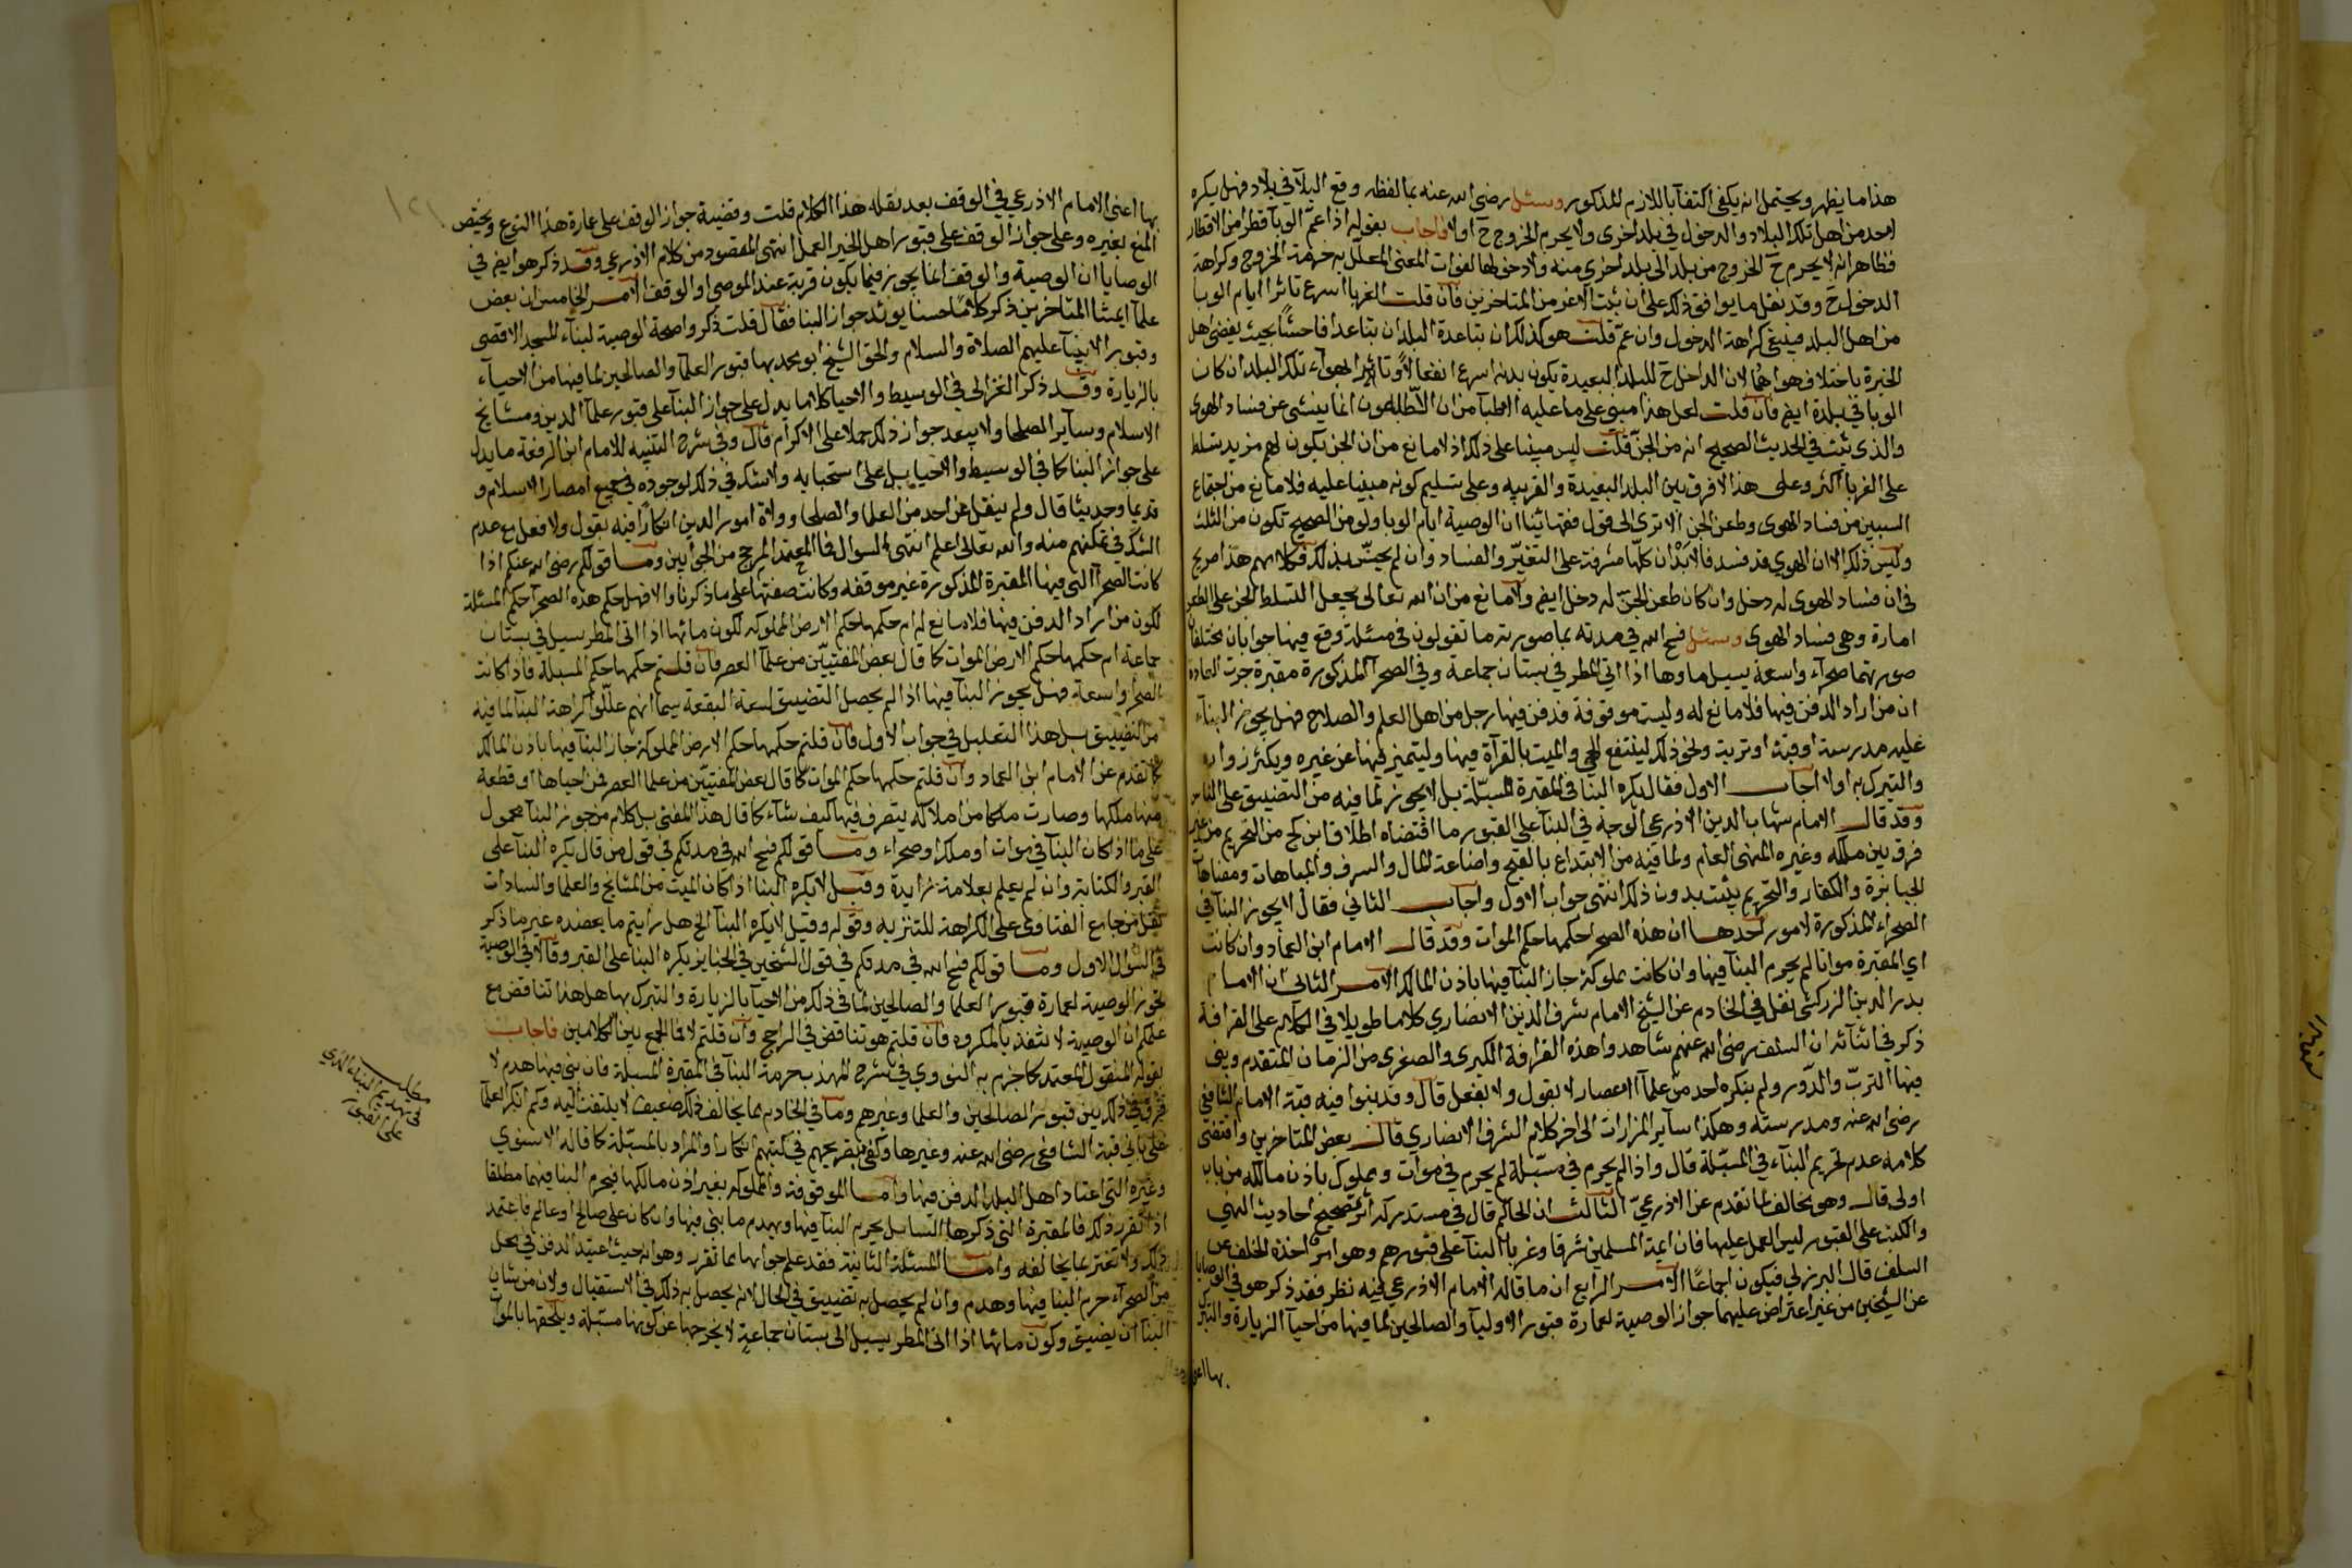 هذا ما يظهر ويحتمل انه يكفي اكتفآ باللازم المذكور وسئل رضي الله عنه بما لفظه وقع البلآ في بلاد فهل يكره
لاحد من اهل تلك البلاد والدخول في بلد اخرى ولا يحرم الخروج ح اولا فاجاب بقوله اذا عمّ الوبآ قطرا من الاقطار
فظاهر انه لا يحرم ح الخروج من بلد الى بلد اخرى منه ولا دخولها لفوات المعنى المعلل به حرمة الخروج وكراهة
الدخول ح وقد نقل ما يوافق ذلك على ان بثت الاغر من المتاخرين فان قلت الغربا اسرع تاثرا ايام الوبا
من اهل البلد فينبغي كراهة الدخول وان عمّ قلت هو كذلك ان تباعدة البلدان تباعدا فاحشًا بحيث يقضي اهل
الخبرة باختلاف هواهما لان الداخل ح للبلد البعيدة يكون بدنه اسرع انفعالاً وتاثرا لهوآء تلك البلد ان كان
الوبا في بلدة ايض فان قلت لعل هذا مبني على ما عليه الاطبآ من ان الطاعون انما ينشى عن فساد الهوى
والذي ثبت في الحديث الصحيح انه من الجنّ قلت ليس مبينا على ذلك اذ لا مانع من ان الجن يكون لهم مزيد تسلط
على الغربا اكثر وعلى هذا لا فرق بين البلد البعيدة والقريبه وعلى تسليم كونه مبنيا عليه فلا مانع من اجتماع
السببين من فساد الهوى وطعن الجن الا ترى الى قول فقهائنا ان الوصية ايام الوبا ولو من الصحيح تكون من الثلث
وليس ذلك الا ان الهوى قد فسد فالابدان كلها مشرفة على التغيّر والفساد وان لم يحسّ بذلك فكلامهم هذا صريح
في ان فساد الهوى له دخل وان كان طعن الجنّ له دخل ايض ولا مانع من ان الله تعالى يجعل التسلط الجن على الطعن
امارة وهي فساد الهوى وسئل فسح الله في مدته بما صورته ما تقولون في مسئلة وقع فيها جوابان مختلفان
صورتهما صحرآء واسعة يسيل ماوها اذا اتى المطر في بستان جماعة وفي الصحرآ المذكورة مقبرة جرت العادة
ان من اراد الدفن فيها فلا مانع له وليست موقوفة فدفن فيها رجل من اهل العلم والصلاح فهل يجوز البنآء
عليه مدرسة او قبة او تربة ونحو ذلك لينتفع الحي والميت بالقرآة فيها وليتميز فيها عن غيره ويكثر زواره
والتبرك به اولا اجاب الاول فقال يكره البنا في المقبرة المسبّلة بل لا يجوز لما فيه من التضييق على الناس
وقد قال الامام شهاب الدين الاذرعي الوجه في البنآ على القبور ما اقتضاه اطلاق ابن كج من التحريم من غير
فرق بين ملكه وغيره للنهي العام ولما فيه من الابتداع بالقبح واضاعة المال والسرف والمباهات ومضاهآة
الجبابرة والكفار والتحريم يثبت بدون ذلك انتهى جواب الاول واجاب الثاني فقال لا يجوز البنآ في
الصحراء المذكورة لامور احدها ان هذه الصحرآ حكمها حكم الموات وقد قال الامام ابن العماد وان كانت
اي المقبرة مواتا لم يحرم البنآ فيها وان كانت مملوكة جاز البنآ فيها باذن المالك الامر الثاني ان الامام
بدر الدين الزركشي نقل في الخادم عن الشيخ الامام شرف الدين الانصاري كلاما طويلا في الكلام على القرافة
ذكر في اثنآئه ان السلف رضي الله عنهم شاهدوا هذه القرافة الكبرى والصغرى من الزمان المتقدم وبنى
فيها الترب والدور ولم ينكره احد من علمآ الاعصار لا بقول ولا بفعل قال وقد بنوا فيه قبة الامام الشافعي
رضي الله عنه ومدرسته وهكذا ساير المزارات الى اخر كلام الشرف الانصاري قال بعض المتاخرين واقتضى
كلامه عدم تحريم البنآء في المسبّلة قال واذا لم يحرم في مسبّلة لم يحرم في موات ومملوك باذن مالكه من باب
اولى قال وهو مخالف لما تقدم عن الاذرعيّ الثالث ان الحاكم قال في مستدركه اثر تصحيح احاديث النهي
والكتب على القبور ليس العمل عليها فان ايمة المسلمين شرقا وغربا البنآ على قبورهم وهو امر اخذه الخلف عن
السلف قال البرزلي فيكون اجماعًا الامر الرابع ان ما قاله الامام الاذرعي فيه نظر فقد ذكر هو في الوصايا
عن الشيخين من غير اعتراض عليهما جواز الوصية لعمارة قبور الاوليآ والصالحين لما فيها من احيآ الزيارة والتبرك
بها اعني
بها اعني الامام الاذرعي في الوقف بعد نقله هذا الكلام قلت وقضية جواز الوقف على عمارة هذا النوع ويختص
المنع بغيره وعلى جواز الوقف على قبور اهل الخير العمل انتهى المقصود من كلام الاذرعي وقد ذكر هو ايض في
الوصايا ان الوصية والوقف انما يجوز فيما يكون قربة عند الموصي او الوقف الامر الخامس ان بعض
علمآ ايمتنا المتاخرين ذكر كلامًا حسنا يوئد جواز البنا فقال قلت ذكر واصحة الوصية لبنآء المسجد الاقصى
وقبور الانبيآ عليهم الصلاة والسلام والحق الشيخ ابو محمد بها قبور العلمآ والصالحين لما فيها من الاحيآء
بالزيارة وقد ذكر الغزالي في الوسيط والاحيا كلاما يدل على جواز البنآ على قبور علمآ الدين ومشايخ
الاسلام وساير الصلحا ولا يبعد جواز ذلك حملا على الاكرام قال وفي شرح التنبيه للامام ابن الرفعة ما يدل
على جواز البنا كما في الوسيط والاحيا بل على استحبابه ولا شك في ذلك لوجوده في جميع امصار الاسلام و
قديما وحديثا قال ولم ينقل عن احد من العلما والصلحا وولاة امور الدين انكارًا فيه بقول ولا فعل مع عدم
الشك في تمكنهم منه والله تعالى اعلم انتهى السوال فما المعتمد المرجح من الجوابين وما قولكم رضي الله عنكم اذا
كانت الصحرآ التي فيها المقبرة المذكورة غير موقفه وكانت صفتها على ما ذكرنا والا فهل حكم هذه الصحرآ حكم المسئلة
لكون من اراد الدفن فيها فلا مانع له ام حكمها حكم الارض المملوكه لكون مائها اذا اتى المطر يسيل في بستان
جماعة ام حكمها حكم الارض الموات كما قال بعض المفتيّين من علمآ العصر فان قلتم حكمها حكم المسبلة فاذا كانت
الصحرآ واسعة فهل يجوز البنآ فيها اذا لم يحصل التضييق لسعة البقعة سيما انهم علّلوا كراهة البنآ لما فيه
من التضييق بل هذا التعليل في جواب الاول فان قلتم حكمها حكم الارض المملوكة جاز البنآ فيها باذن المالك
كما تقدم عن الامام ابن العماد وان قلتم حكمها حكم الموات كما قال بعض المفتيّين من علما العصر فمن احياها او قطعة
منها ملكها وصارت ملكا من املاكه يتصرف فيها كيف شآء كما قال هذا المفتي بل كلام من جوز البنآ محمول
على ما اذا كان البنآ في موات او ملك او صحراء وما قولكم فسح الله في مدتكم في قول من قال يكره البنآ على
القبر والكتابة وان لم يعلم بعلامة زايدة وقيل لا يكره البنا اذا كان الميت من المشايخ والعلما والسادات
نقل من جامع الفتاوى على الكراهة للتنزيه وقوله وقيل لا يكره البنآ الخ هل رايتم ما يعضده غير ما ذكر
في السوال الاول وما قولكم فسح الله في مدتكم في قول الشيخين في الجنايز يكره البنا على القبر وقالا في الوصية
تجوز الوصية لعمارة قبور العلما والصالحين لما في ذلك من الاحيآ بالزيارة والتبرك بها هل هذا تناقض مع
علمكم ان الوصية لا تنفذ بالمكروه فان قلتم هو تناقض في الراجح وان قلتم لا فما الجمع بين الكلامين فاجاب
بقوله المنقول المعتمد كما جزم به النووي في شرح المهذب حرمة البنآ في المقبرة المسبلة فان بنى فيها هدم لا
فرق في ذلك بين قبور الصالحين والعلما وغيرهم وما في الخادم مما يخالف ذلك ضعيف لا يلتفت اليه وكم انكر العلمآ
على باني قبة الشافعي رضي الله عنه وغيرها وكفى بتصريحهم في كتبهم انكارا والمراد بالمسبّلة كما قاله الاسنوي
وغيره التي اعتاد اهل البلد الدفن فيها واما الموقوفة والمملوكه بغير اذن مالكها فيحرم البنا فيهما مطلقا
اذا تقرر ذلك فالمقبرة التي ذكرها السايل يحرم البنآ فيها ويهدم ما بنى فيها وان كان على صالح او عالم فاعتمد
ذلك ولا تغتر بما يخالفه واما المسئلة الثانية فقد علم جوابها مما تقرر وهو انه حيث اعتيد الدفن في محل
من الصحرآء حرم البنا فيها وهدم وان لم يحصل به تضييق في الحال لانه يحصل به ذلك في الاستقبال ولان من شان
البنا ان يضيق وكون مائها اذا اتى المطر يسيل الى بستان جماعة لا يخرجها عن كونها مسبّلة ويلحقها بالموات
مطلب
في تهديم البناء الذي
على القبور
١٢١